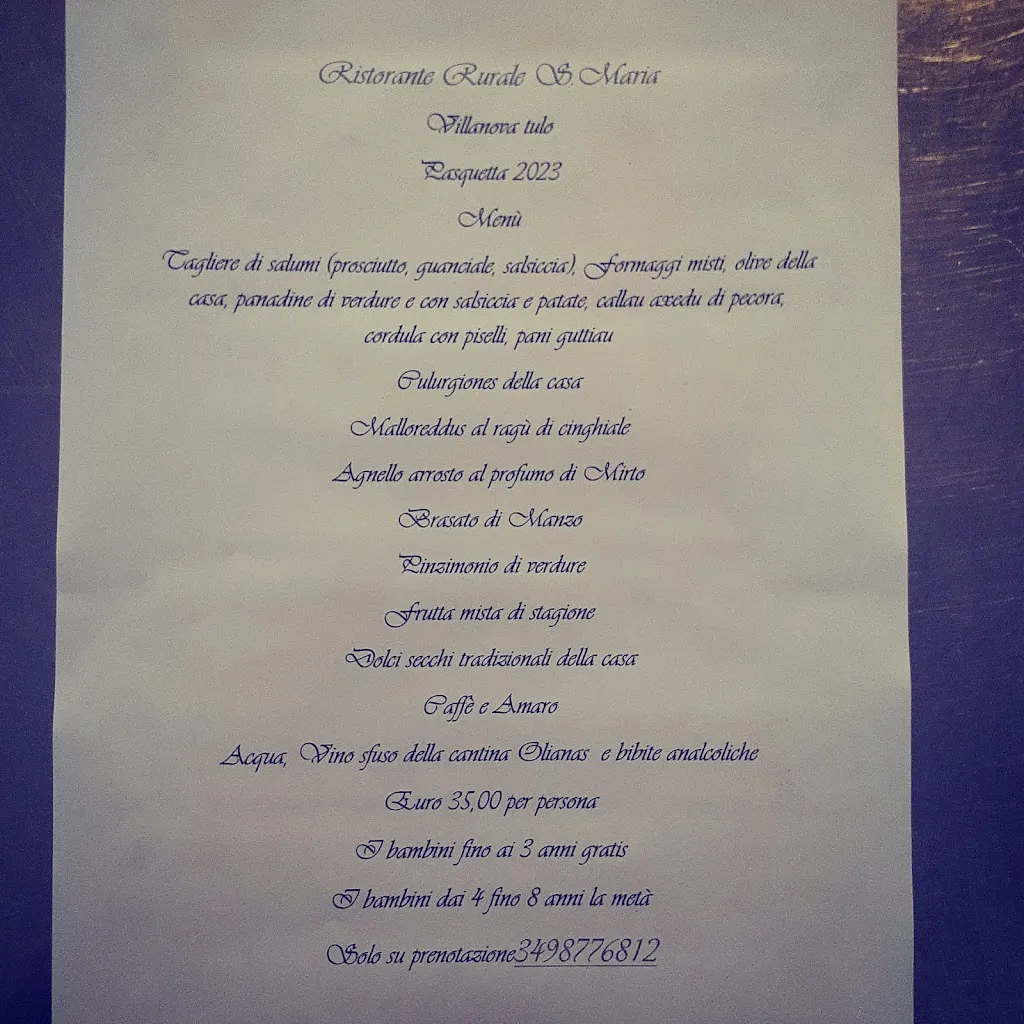 Ristorante Rurale S. Maria
Villanova tulo
Pasquetta 2023
Menù
Tagliere di salumi (prosciutto, guanciale, salsiccia), Formaggi misti, olive della
casa, panadine di verdure e con salsiccia e patate, callau axedu di pecora,
cordula con piselli, pani guttiau
Culurgiones della casa
Malloreddus al ragù di cinghiale
Agnello arrosto al profumo di Mirto
Brasato di Manzo
Pinzimonio di verdure
Frutta mista di stagione
Dolci secchi tradizionali della casa
Caffè e Amaro
Acqua, Vino sfuso della cantina Olianas e bibite analcoliche
Euro 35,00 per persona
I bambini fino ai 3 anni gratis
I bambini dai 4 fino 8 anni la metà
Solo su prenotazione3498776812